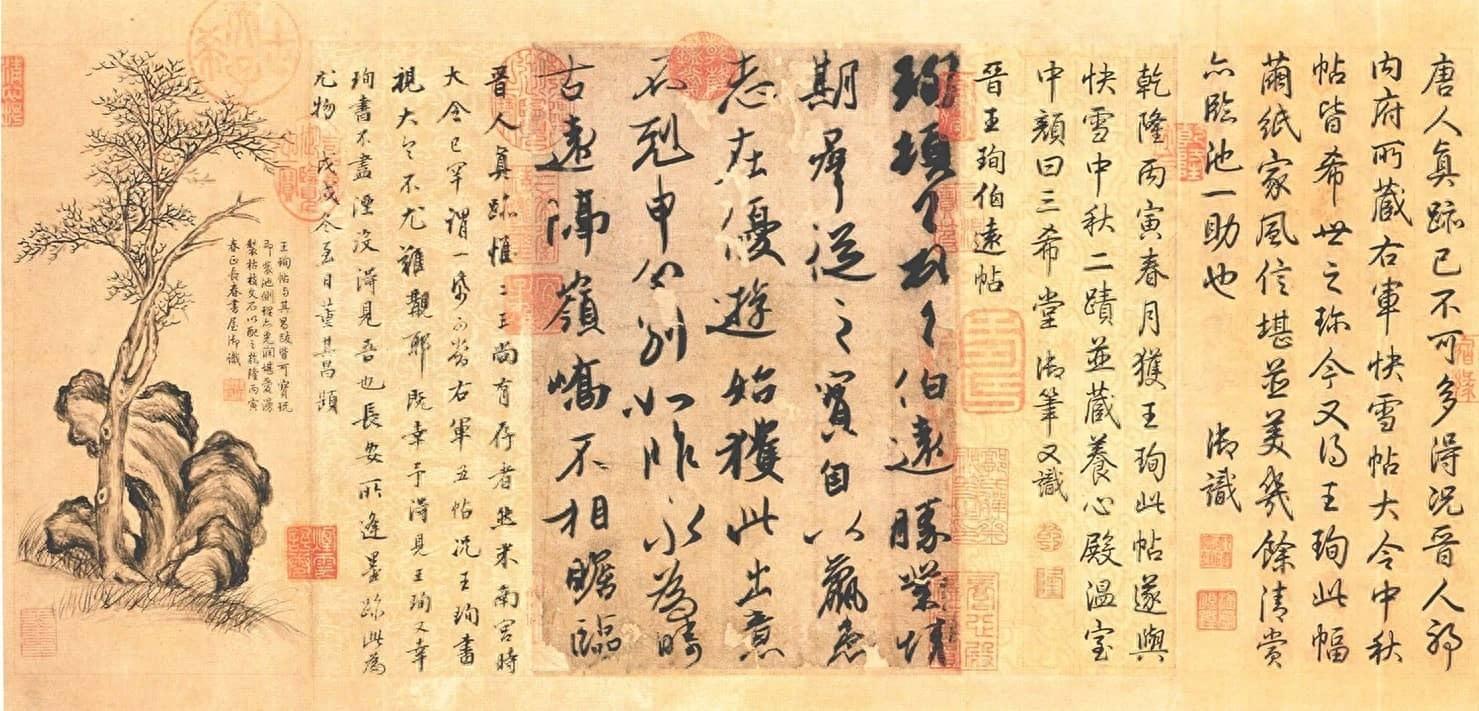 唐人真跡已不可多得况晉人耶
内府所藏右軍快雪帖大令中秋
帖皆希世之珎今又得王珣此幅
繭紙家風信堪並美幾餘清賞
亦臨池一助也 御識
乾隆丙寅春月獲王珣此帖遂與
快雪中秋二蹟並藏養心殿温室
中顔曰三希堂 御筆又識
乾隆
晉王珣伯遠帖
珣頓首頓首伯遠勝業情
期羣從之寳自以羸患
志在優遊始獲此出意
不剋申分别如昨永為疇
古遠隔嶺嶠不相瞻臨
晉人真跡惟二王尚有存者然米南宮時
大令已罕謂一紙可當右軍五帖况王珣書
視大令不尤難覯耶既幸予得見王珣又幸
珣書不盡湮沒得見吾也長安所逢墨跡此為
尤物 戊戌冬至日董其昌題
王珣帖與其昌跋皆可寳玩
即裝池側理亦光潤堪愛漫
製枯枝文石以配之乾隆丙寅
春正長春書屋御識